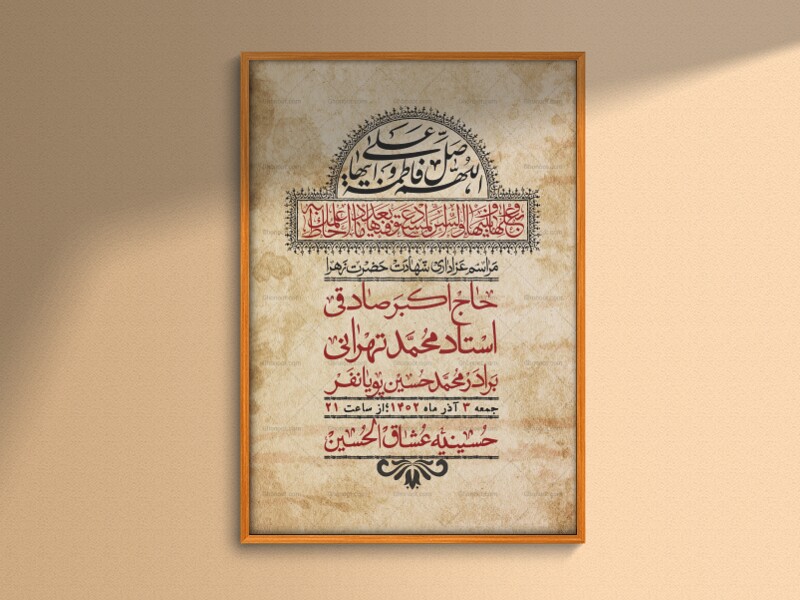 اللهم صل علی فاطمة و ابیها
و بعلها و بنیها و السر المستودع فیها بعدد ما احاط به علمک
مراسم عزاداری شهادت حضرت زهرا
حاج اکبر صادقی
استاد محمد تهرانی
برادر محمد حسین پویانفر
جمعه ۳ آذر ماه ۱۴۰۲؛از ساعت ۲۱
حسینیه عشاق الحسین